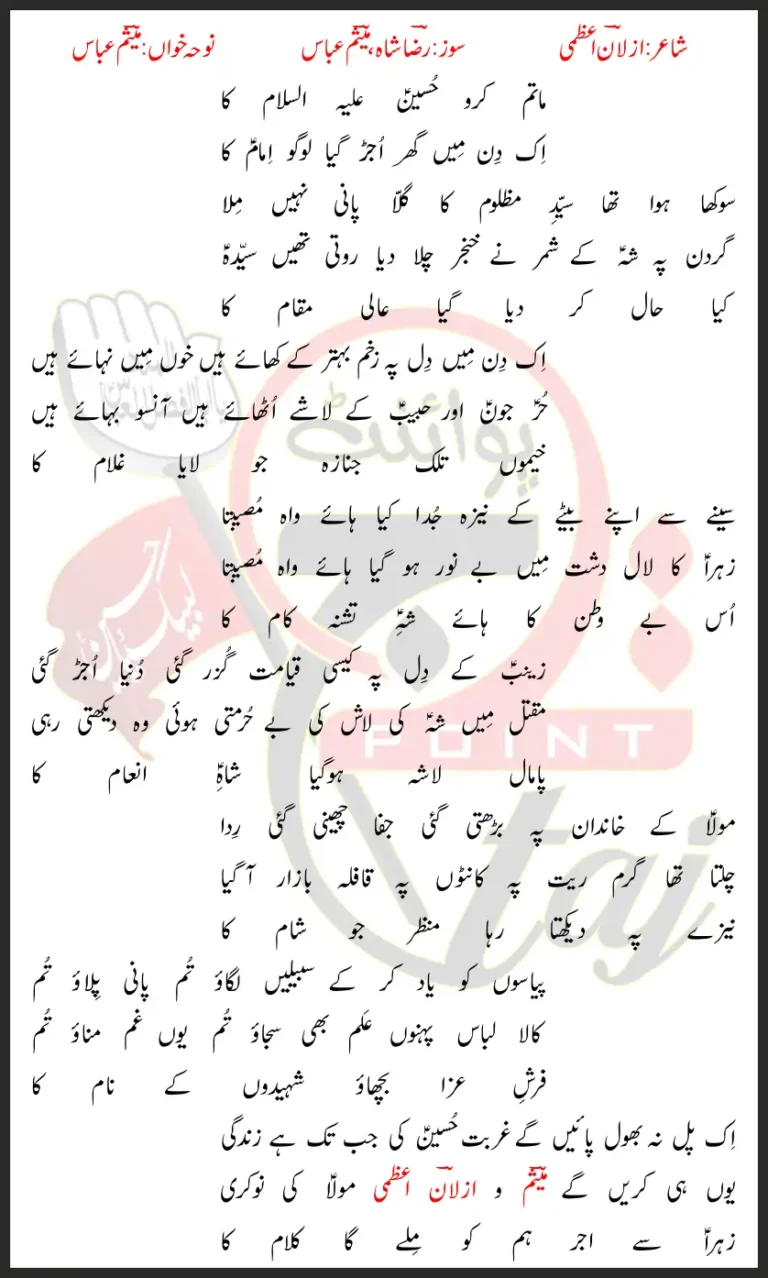 شاعر: ازلان اعظمی سوز: رضا شاہ، میثم عباس نوحہ خواں: میثم عباس
ماتم کرو حُسینؑ علیہ السلام کا
اِک دِن مِیں گھر اُجڑ گیا لوگو اِمامؑ کا
سوکھا ہوا تھا سیّدِ مظلوم کا گلّا پانی نہیں مِلا
گردن پہ شہؑ کے شمر نے خنجر چلا دیا روتی تھیں سیّدہؑ
کیا حال کر دیا گیا عالی مقام کا
اِک دِن مِیں دِل پہ زخم بہتر کے کھائے ہیں خوں مِیں نہائے ہیں
حُرؑ جونؑ اور حبیبؑ کے لاشے اُٹھائے ہیں آنسو بہائے ہیں
خیموں تلک جنازہ جو لایا غلام کا
سینے سے اپنے بیٹے کے نیزہ جُدا کیا ہائے واہ مُصیبتا
زہراؑ کا لال دشت مِیں بے نور ہو گیا ہائے واہ مُصیبتا
اُس بے وطن کا ہائے شہِؑ تشنہ کام کا
زینبؑ کے دِل پہ کیسی قیامت گُزر گئی دُنیا اُجڑ گئی
مقتل مِیں شہؑ کی لاش کی بے حُرمتی ہوئی وہ دیکھتی رہی
پامال لاشہ ہوگیا شاہِؑ انعام کا
مولاؑ کے خاندان پہ بڑھتی گئی جفا چھینی گئی رِدا
چلتا تھا گرم ریت پہ کانٹوں پہ قافلہ بازار آ گیا
نیزے پہ دیکھتا رہا منظر جو شام کا
پیاسوں کو یاد کر کے سبیلیں لگاؤ تُم پانی پِلاؤ تُم
کالا لباس پہنوں عَلم بھی سجاؤ تُم یوں غم مناؤ تُم
فرشِ عزا بچھاؤ شہیدوں کے نام کا
اِک پل نہ بھول پائیں گے غربت حُسینؑ کی جب تک ہے زندگی
یوں ہی کریں گے میثم و ازلان اعظمی مولاؑ کی نوکری
زہراؑ سے اجر ہم کو مِلے گا کلام کا
پوائنٹ
POINT
taj